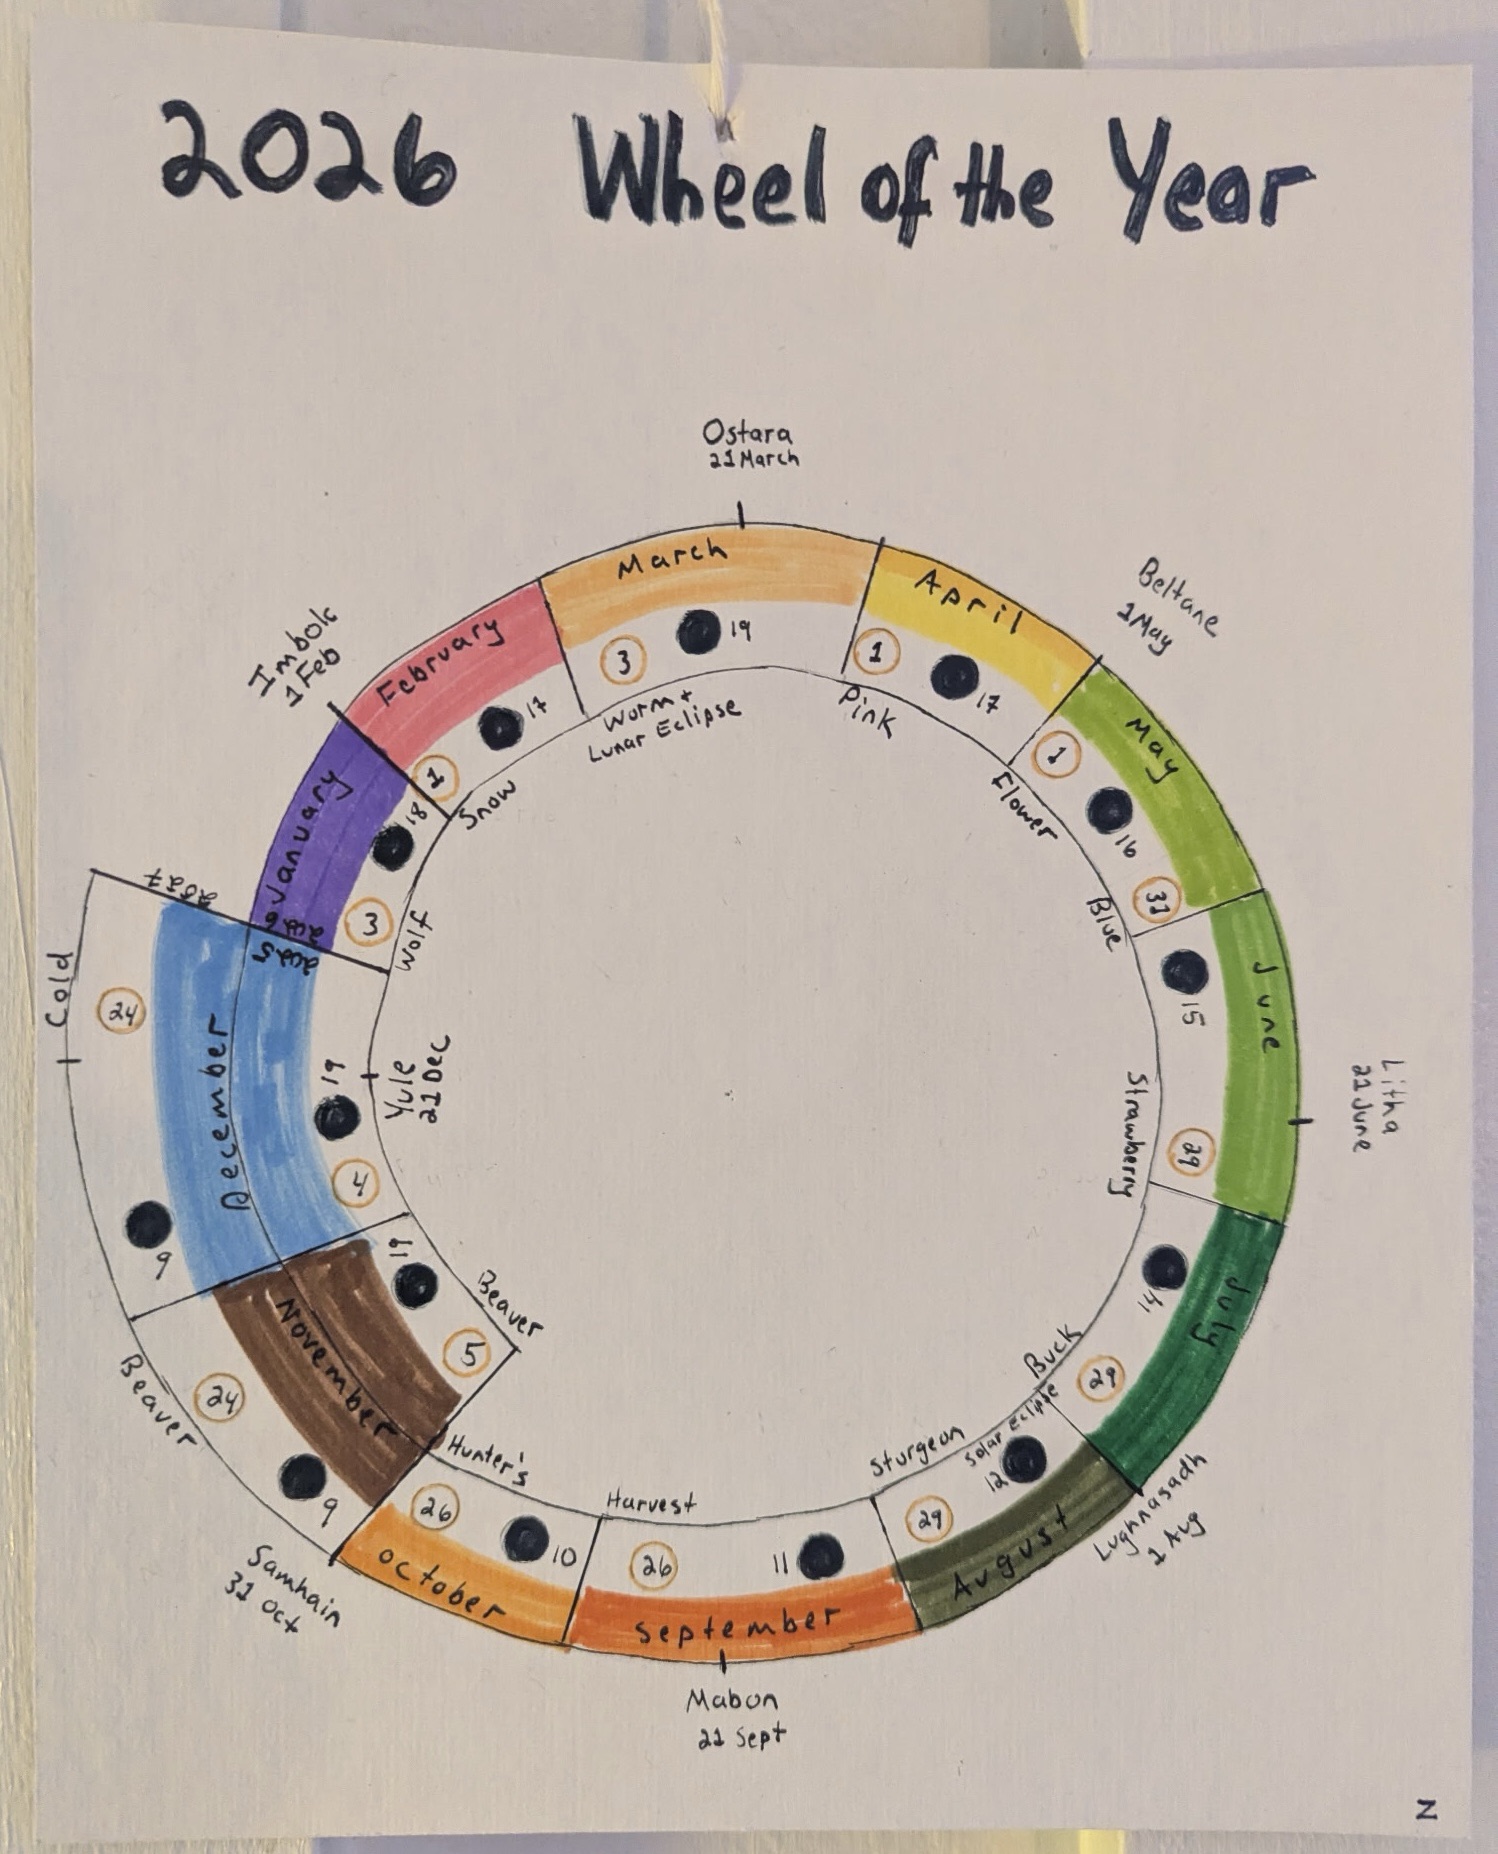 2026 Wheel of the Year
Ostara
21 March
Beltane
1 May
Litha
21 June
Lughnasadh
1 Aug
Mabon
21 Sept
Samhain
31 Oct
Imbolc
1 Feb
January
2026
3
Wolf
18
February
1
Snow
17
March
3
Worm +
Lunar Eclipse
19
April
1
Pink
17
May
1
Flower
16
31
Blue
June
15
29
Strawberry
July
14
29
Buck
August
12
Solar Eclipse
29
Sturgeon
September
11
26
Harvest
October
10
26
Hunter's
November
5
Beaver
19
9
24
Beaver
December
4
19
Yule
21 Dec
2025
9
24
Cold
2027
N